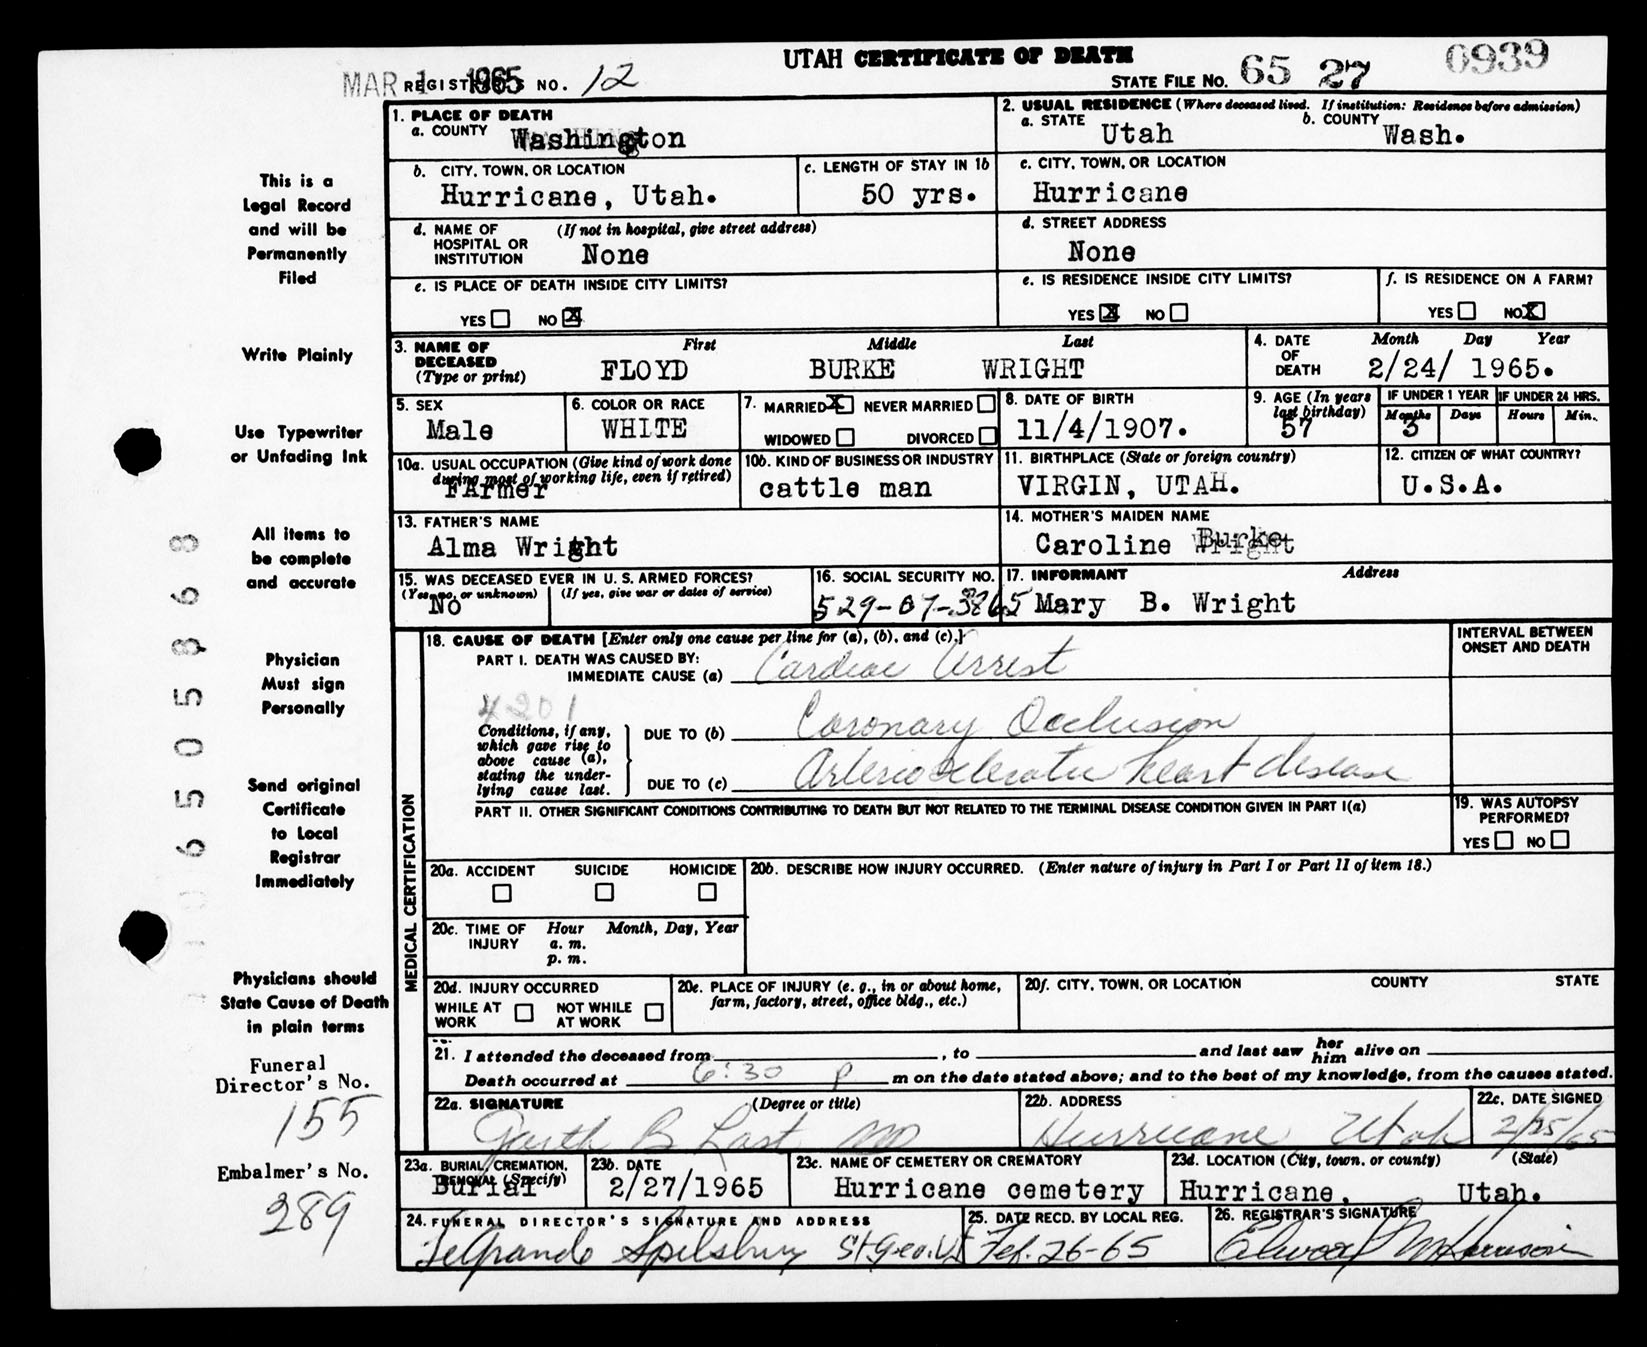 UTAH CERTIFICATE OF DEATH
MAR 1 1965 REGISTRAR'S NO. 12
STATE FILE NO. 65 27 6939
This is a
Legal Record
and will be
Permanently
Filed
Write Plainly
Use Typewriter
or Unfading Ink
All items to
be complete
and accurate
Physician
Must sign
Personally
Send original
Certificate
to Local
Registrar
Immediately
Physicians should
State Cause of Death
in plain terms
Funeral
Director's No.
155
Embalmer's No.
289
1. PLACE OF DEATH
a. COUNTY Washington
2. USUAL RESIDENCE (Where deceased lived. If institution: Residence before admission)
a. STATE Utah b. COUNTY Wash.
b. CITY, TOWN, OR LOCATION
Hurricane, Utah.
c. LENGTH OF STAY IN 1b
50 yrs.
c. CITY, TOWN, OR LOCATION
Hurricane
d. NAME OF HOSPITAL OR INSTITUTION (If not in hospital, give street address)
None
d. STREET ADDRESS
None
e. IS PLACE OF DEATH INSIDE CITY LIMITS?
YES NO X
e. IS RESIDENCE INSIDE CITY LIMITS?
YES X NO
f. IS RESIDENCE ON A FARM?
YES NO X
3. NAME OF DECEASED (Type or print)
First Middle Last
FLOYD BURKE WRIGHT
4. DATE OF DEATH
Month Day Year
2/24/ 1965.
5. SEX
Male
6. COLOR OR RACE
WHITE
7. MARRIED X NEVER MARRIED
WIDOWED DIVORCED
8. DATE OF BIRTH
11/4/1907.
9. AGE (In years last birthday)
57
IF UNDER 1 YEAR
Months Days
3
IF UNDER 24 HRS.
Hours Min.
10a. USUAL OCCUPATION (Give kind of work done during most of working life, even if retired)
FArmer
10b. KIND OF BUSINESS OR INDUSTRY
cattle man
11. BIRTHPLACE (State or foreign country)
VIRGIN, UTAH.
12. CITIZEN OF WHAT COUNTRY?
U.S.A.
13. FATHER'S NAME
Alma Wright
14. MOTHER'S MAIDEN NAME
Caroline Burke
15. WAS DECEASED EVER IN U. S. ARMED FORCES?
(Yes, no, or unknown) (If yes, give war or dates of service)
No
16. SOCIAL SECURITY NO.
529-07-3865
17. INFORMANT Address
Mary B. Wright
MEDICAL CERTIFICATION
18. CAUSE OF DEATH [Enter only one cause per line for (a), (b), and (c).]
INTERVAL BETWEEN ONSET AND DEATH
PART I. DEATH WAS CAUSED BY:
IMMEDIATE CAUSE (a) Cardiac Arrest
4201
Conditions, if any, which gave rise to above cause (a), stating the underlying cause last.
DUE TO (b) Coronary Occlusion
DUE TO (c) Arteriosclerotic heart disease
PART II. OTHER SIGNIFICANT CONDITIONS CONTRIBUTING TO DEATH BUT NOT RELATED TO THE TERMINAL DISEASE CONDITION GIVEN IN PART I(a)
19. WAS AUTOPSY PERFORMED?
YES NO
20a. ACCIDENT SUICIDE HOMICIDE
20b. DESCRIBE HOW INJURY OCCURRED. (Enter nature of injury in Part I or Part II of item 18.)
20c. TIME OF INJURY Hour Month, Day, Year
a. m.
p. m.
20d. INJURY OCCURRED
WHILE AT WORK NOT WHILE AT WORK
20e. PLACE OF INJURY (e. g., in or about home, farm, factory, street, office bldg., etc.)
20f. CITY, TOWN, OR LOCATION COUNTY STATE
21. I attended the deceased from , to and last saw her him alive on
Death occurred at 6:30 p m on the date stated above; and to the best of my knowledge, from the causes stated.
22a. SIGNATURE (Degree or title)
Garth B Last MD
22b. ADDRESS
Hurricane Utah
22c. DATE SIGNED
2/25/65
23a. BURIAL, CREMATION, REMOVAL (Specify)
Burial
23b. DATE
2/27/1965
23c. NAME OF CEMETERY OR CREMATORY
Hurricane cemetery
23d. LOCATION (City, town, or county) (State)
Hurricane, Utah.
24. FUNERAL DIRECTOR'S SIGNATURE AND ADDRESS
LeGrande Spilsbury St. Geo. Ut
25. DATE RECD. BY LOCAL REG.
Feb. 26-65
26. REGISTRAR'S SIGNATURE